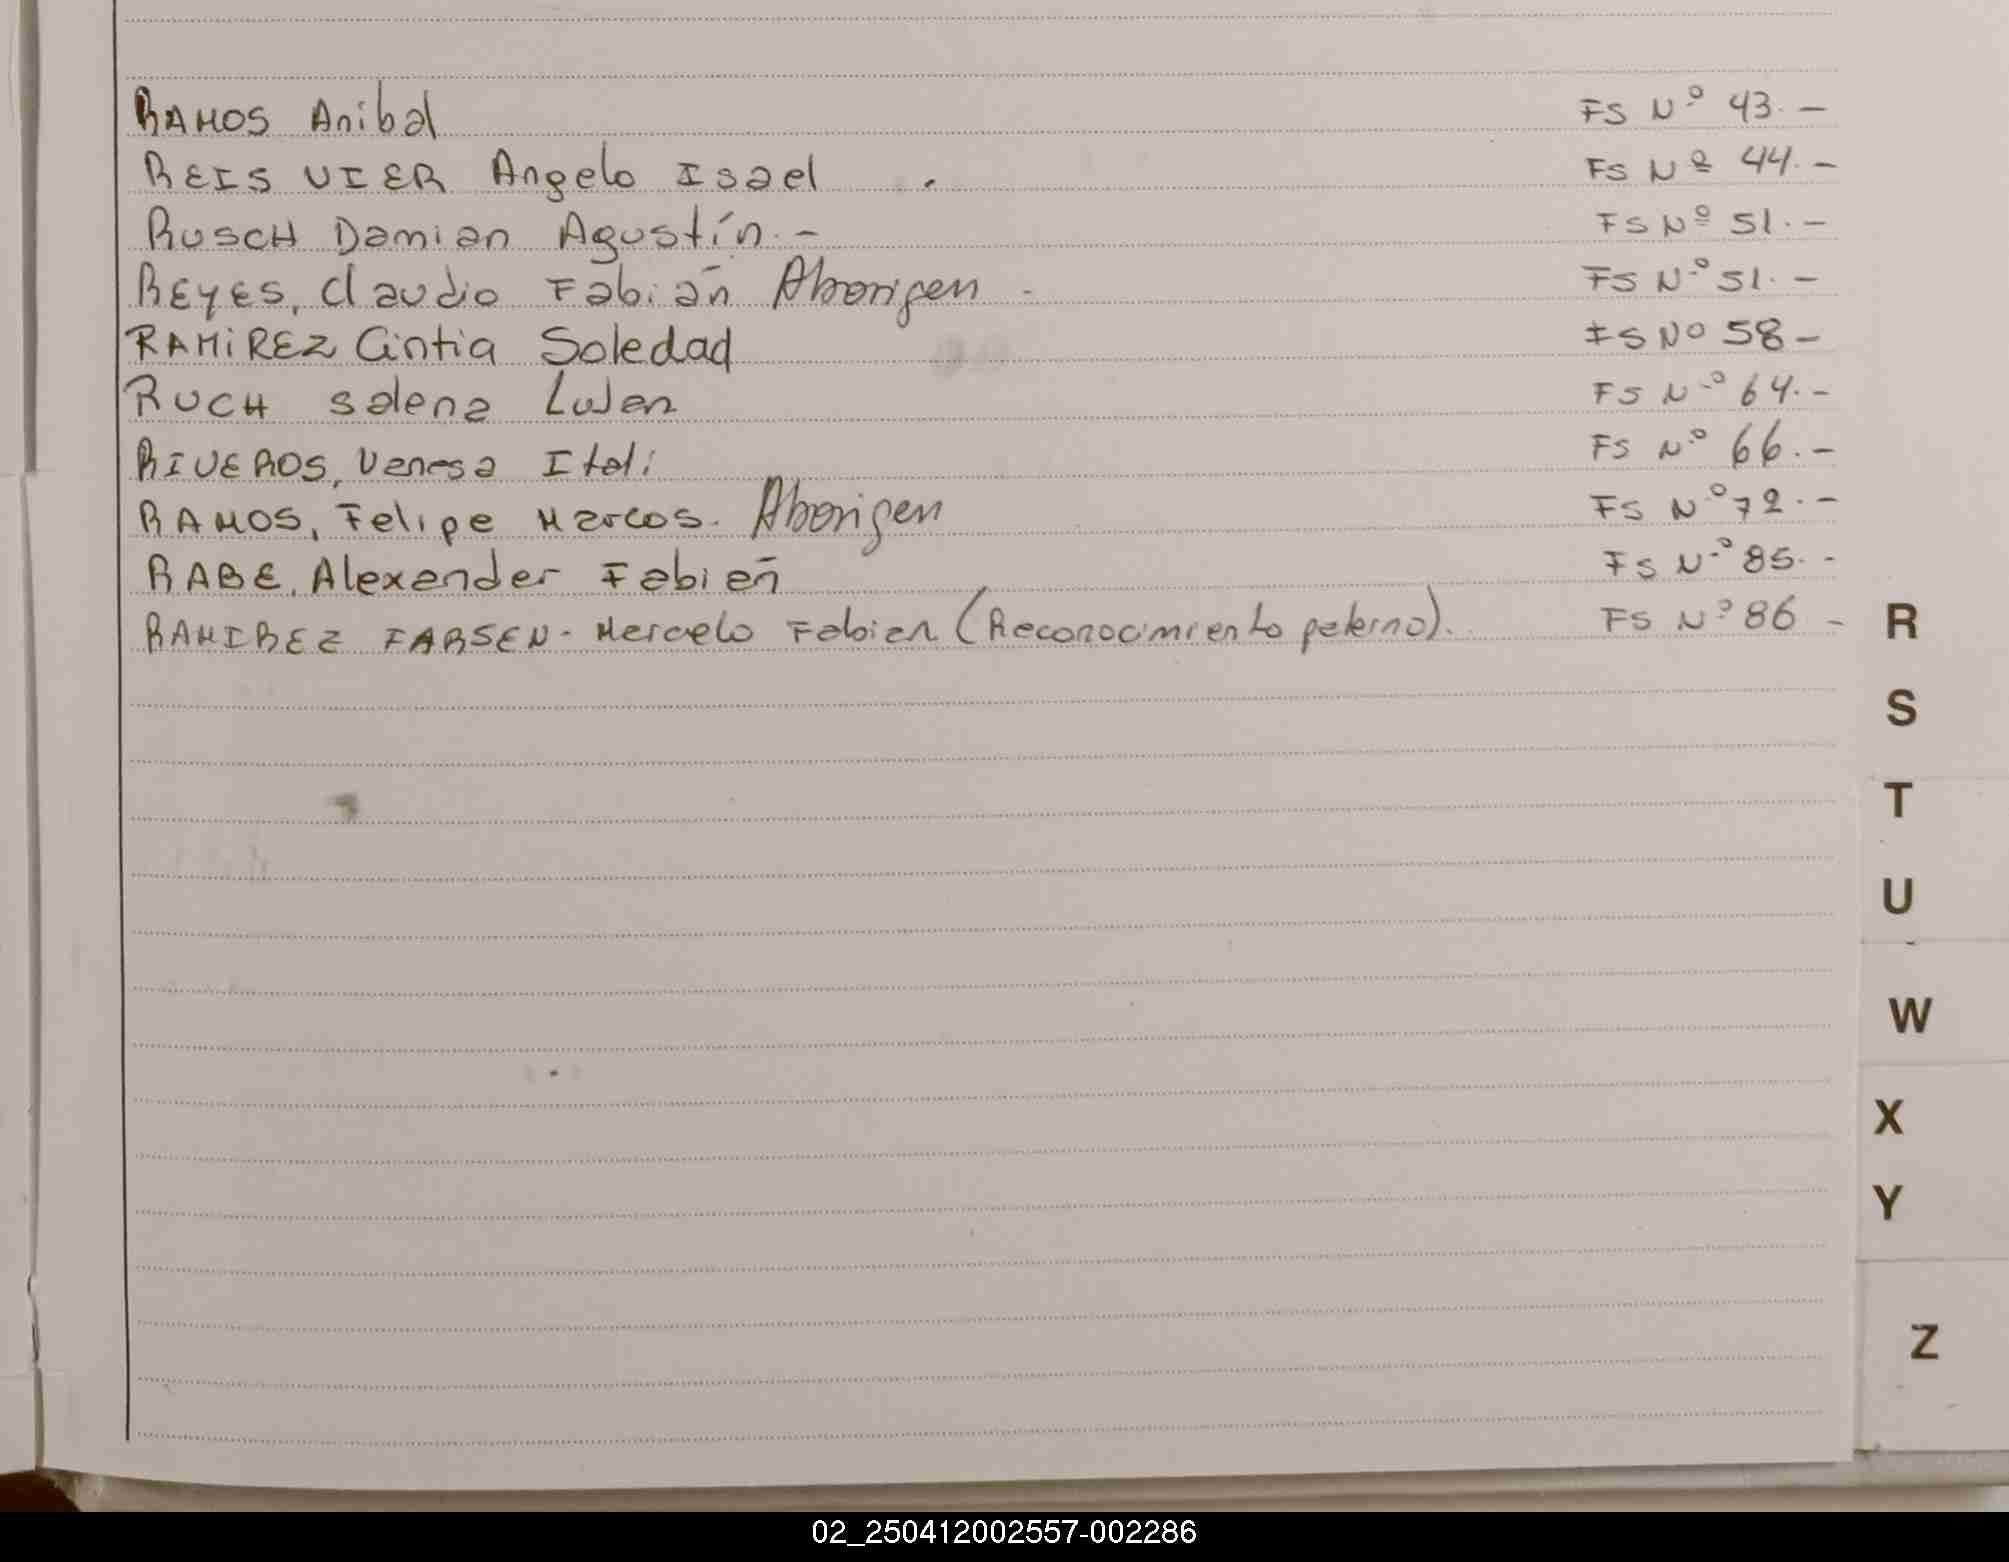 RAMOS Anibal FS Nº 43.-
REIS VIER Angelo Isael . FS Nº 44.-
RUSCH Damian Agustín.- FS Nº 51.-
REYES, Claudio Fabián Aborigen - FS Nº 51.-
RAMiREZ Cintia Soledad FS Nº 58-
RUCH Salena Lujan FS Nº 64.-
RIVEROS, Vanesa Itali FS Nº 66.-
RAMOS, Felipe Marcos. Aborigen FS Nº 72.-
RABE, Alexander Fabián FS Nº 85.-
RAMIREZ FARSEN- Marcelo Fabian (Reconocimiento paterno). FS Nº 86 -
R
S
T
U
W
X
Y
Z
02_250412002557-002286